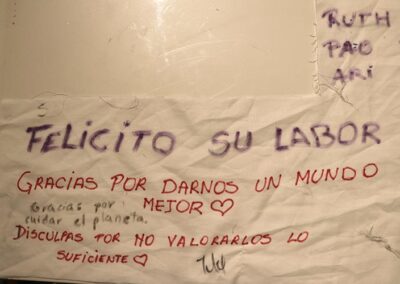 RUTH
PAO
ARI
FELICITO SU LABOR
GRACIAS POR DARNOS UN MUNDO
MEJOR ♡
Gracias por
cuidar el planeta.
DISCULPAS POR NO VALORARLOS LO
SUFICIENTE ♡